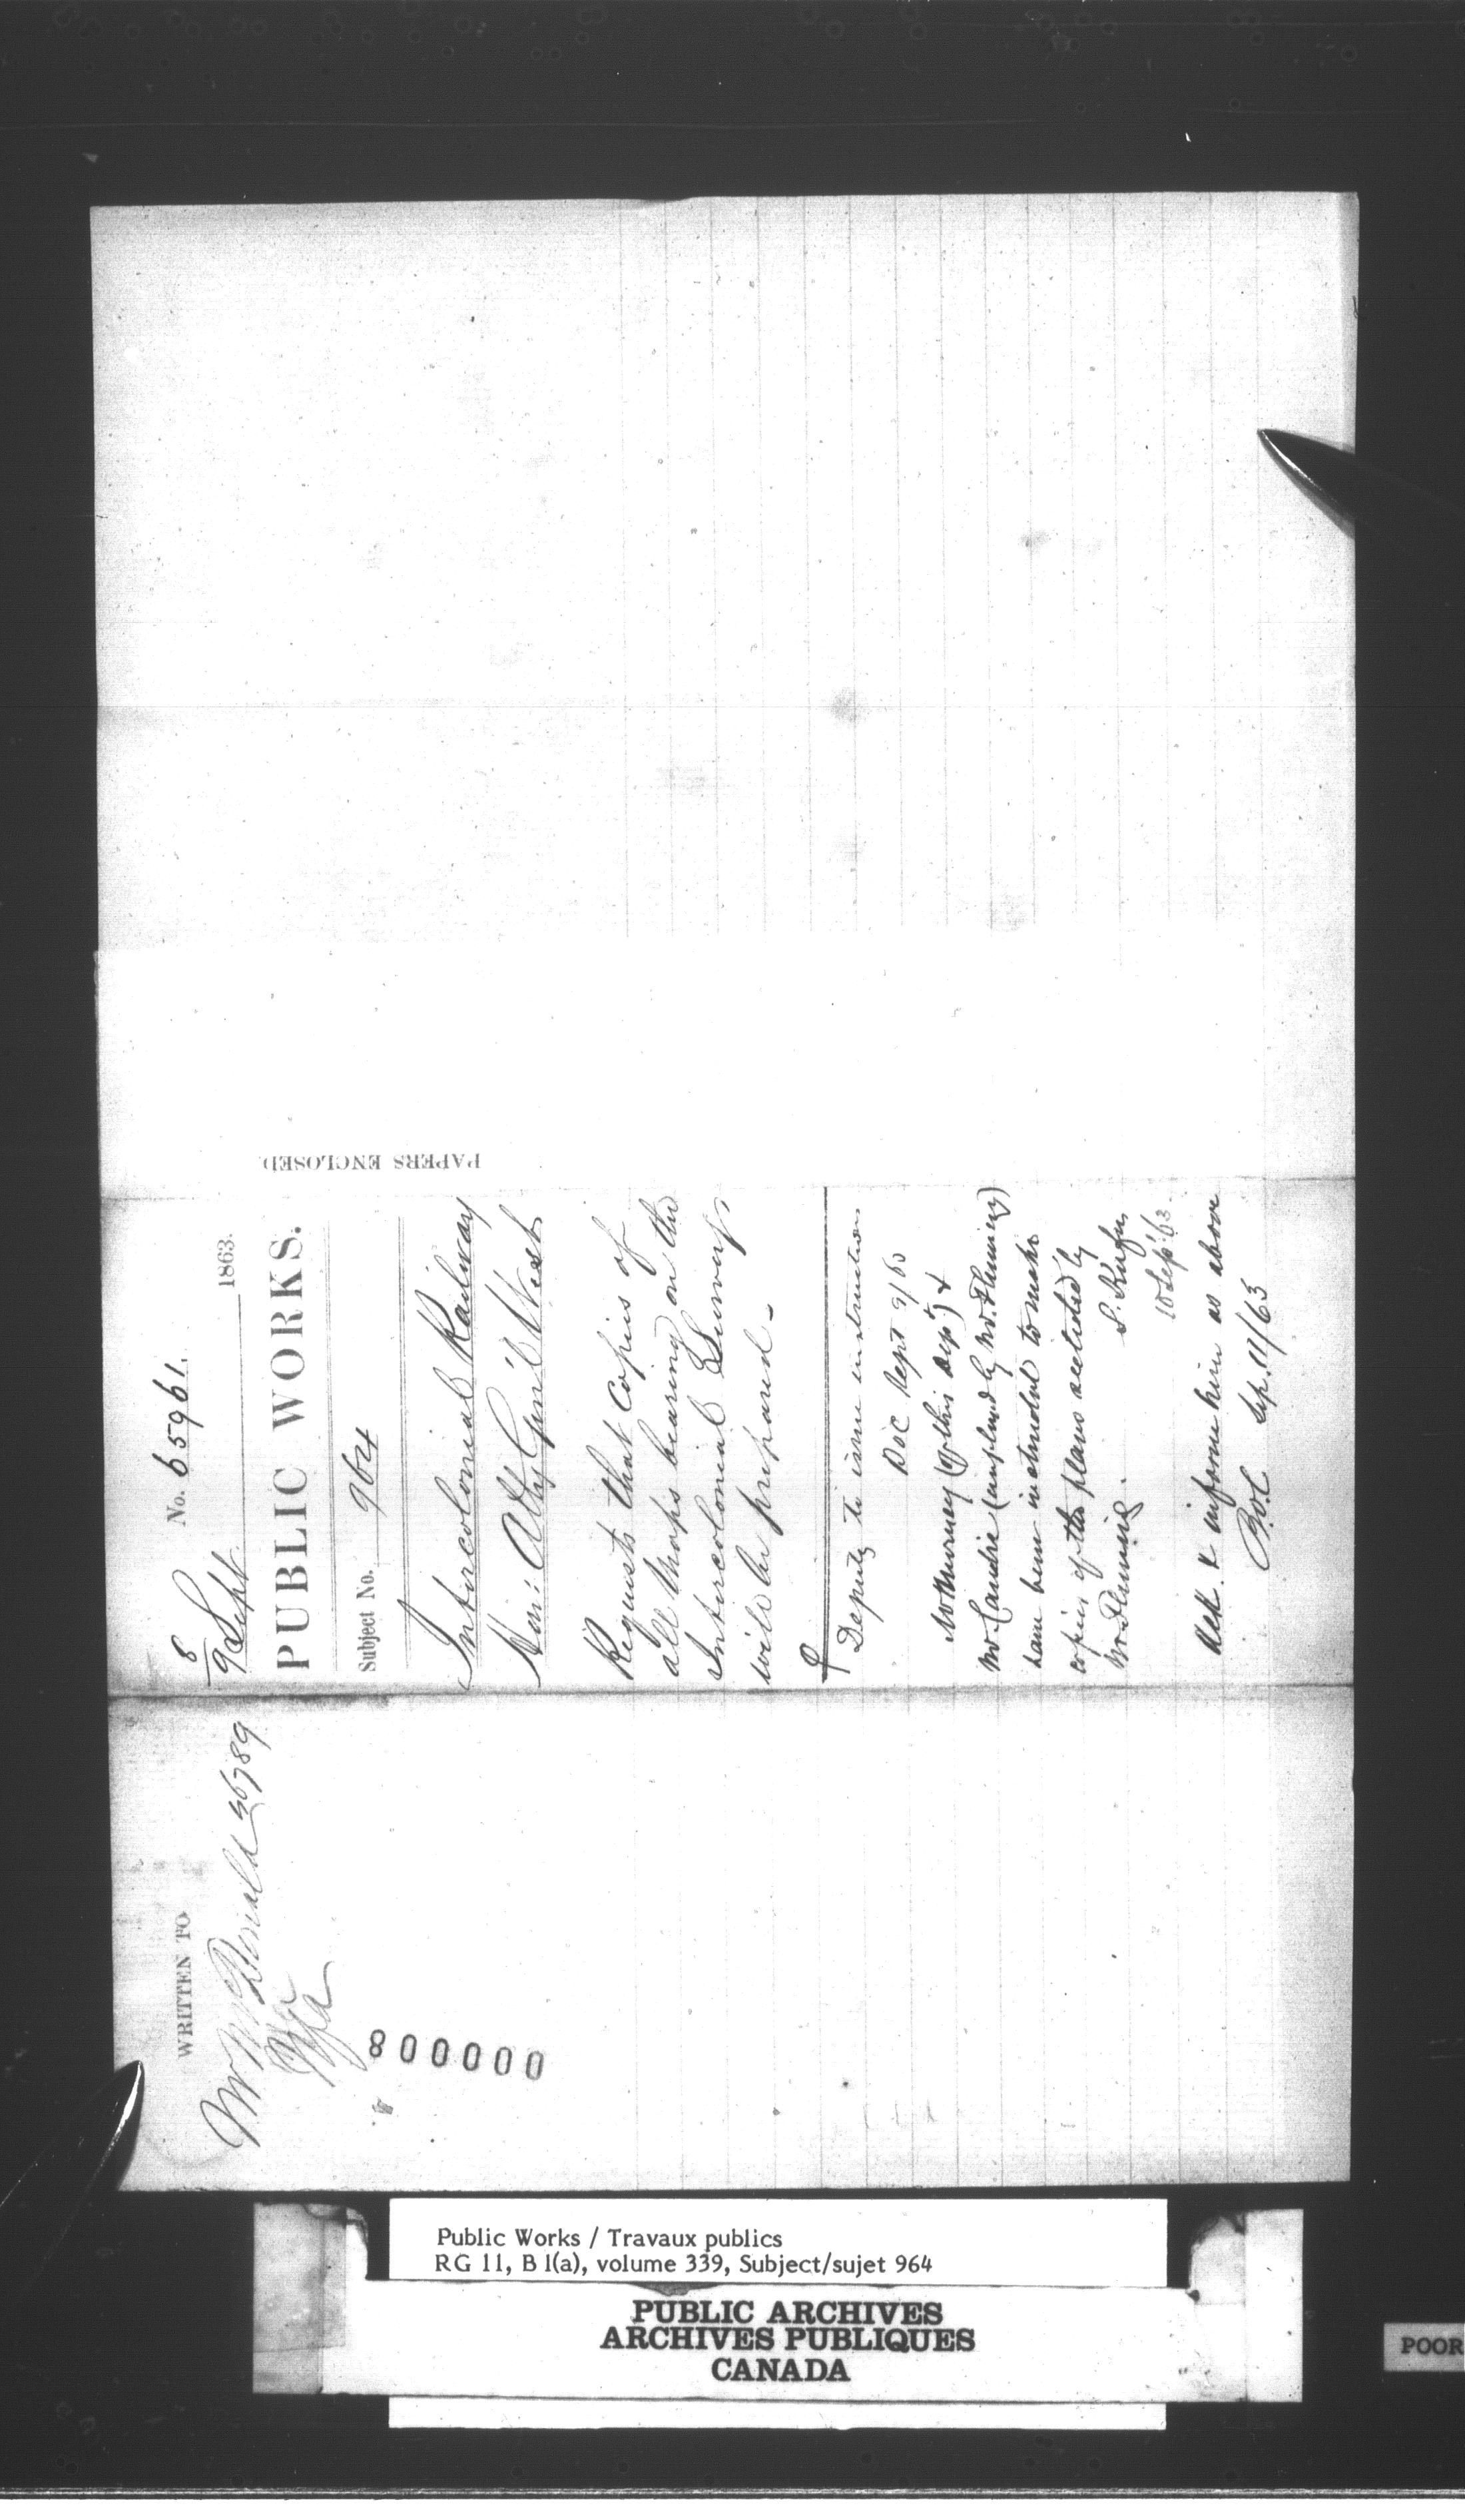 WRITTEN TO
Mr McDonald 36789
800000
8
No. 65961.
9 Sept. 1863.
PUBLIC WORKS.
Subject No. 964
Intercolonial Railway
Hon: Atty Gen'l West
Requests that Copies of
all Maps bearing on the
Intercolonial Surveys
will be prepared -
Deputy to issue instructions
Sept 9/63
(of this Dept) &
Mr. (employed by Mr. Fleming)
have been instructed to make
copies of the plans exhibited by
Mr. Fleming.
10 Sept '63.
Ack. & inform him as above
Sep. 11/63
PAPERS ENCLOSED
Public Works / Travaux publics
RG 11, B 1(a), volume 339, Subject/sujet 964
PUBLIC ARCHIVES
ARCHIVES PUBLIQUES
CANADA
POOR